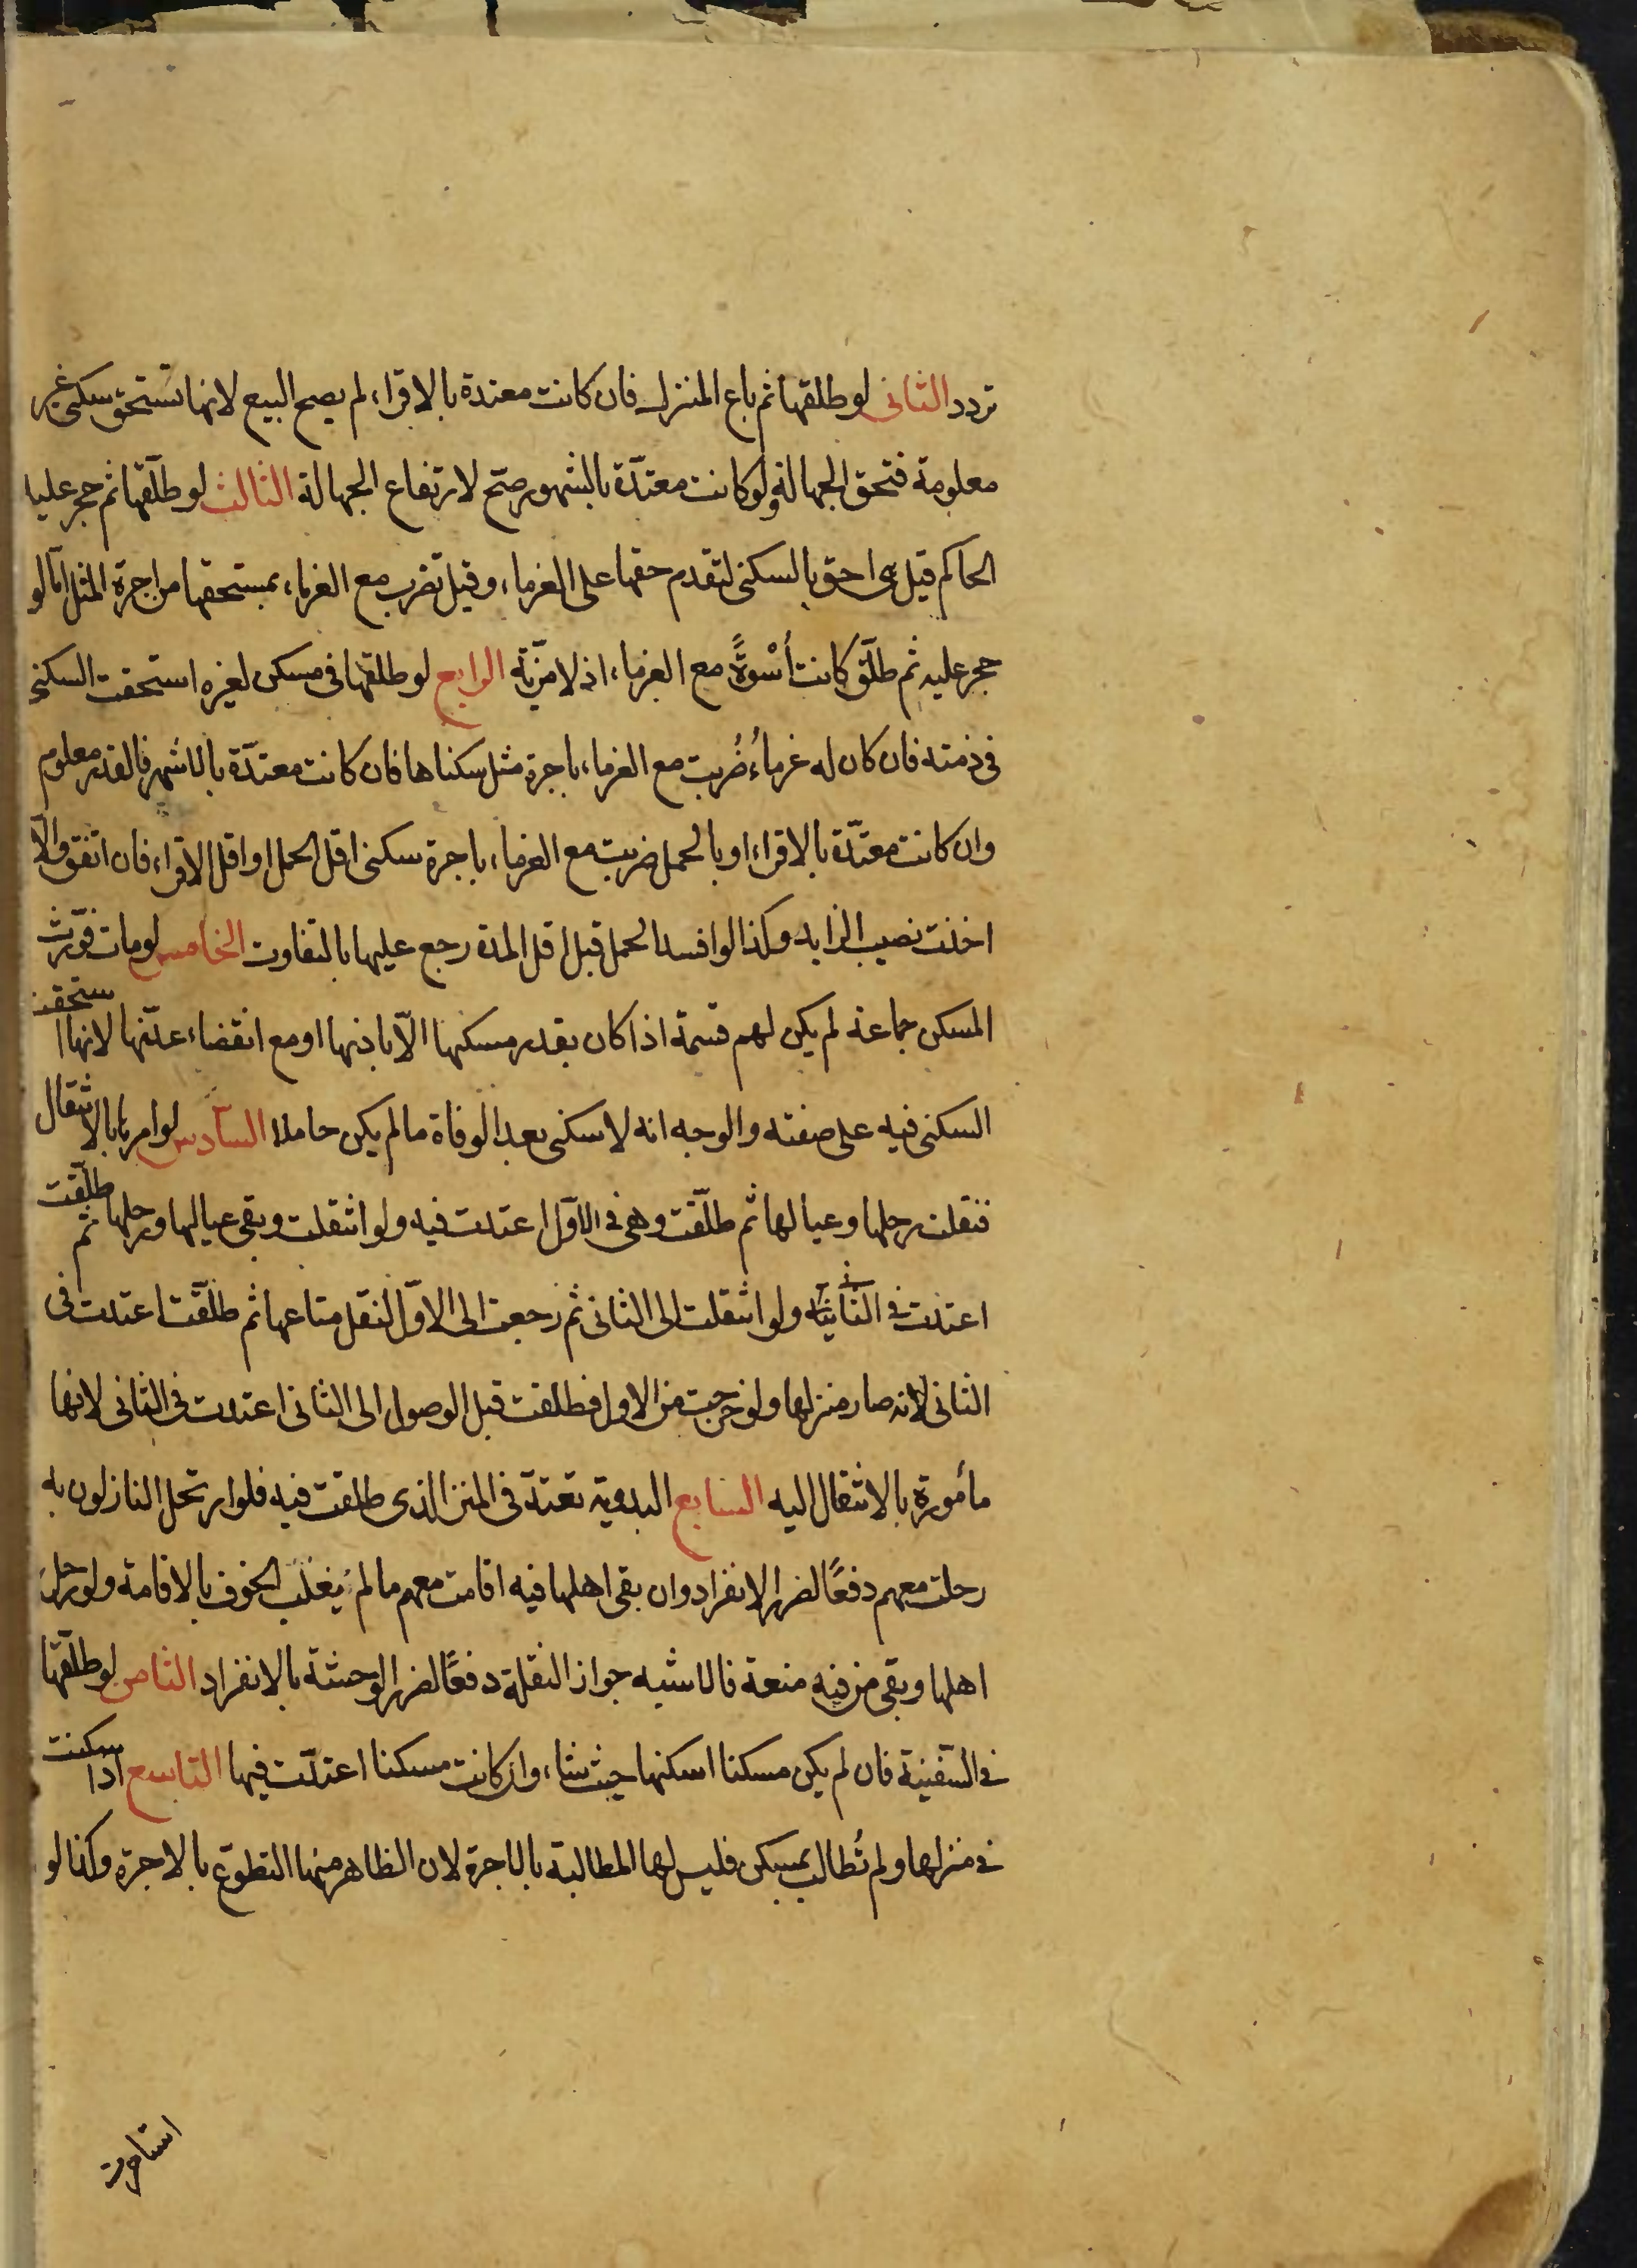 تردد الثانى لو طلقها ثم باع المنزل فان كانت معتدة بالاقراء لم يصح البيع لانها تستحق سكنى غير
معلومة فتحق الجهالة ولو كانت معتدّة بالشهور صح لارتفاع الجهالة الثالث لو طلّقها ثم حجر عليه
الحاكم قيل هى احق بالسكنى لتقدم حقها على الغرماء وقيل تضرب مع الغرماء بمستحقها من اجرة المثل امّا لو
حجر عليه ثم طلّق كانت أسْوةً مع الغرماء اذ لا مزيّة الرابع لو طلقها فى مسكن لغيره استحقت السكنى
فى ذمته فان كان له غرماءُ ضُربت مع الغرماء باجرة مثل سكناها فان كانت معتدّة بالاشهر فالقدر معلوم
وان كانت معتدّة بالاقراء او بالحمل ضربت مع الغرماء باجرة سكنى اقل الحمل او اقل الاقراء فان اتفق والّا
اخذت نصيب الزايد وكذا لو افسد الحمل قبل اقل المدة رجع عليها بالتفاوت الخامس لو مات فورّث
المسكن جماعة لم يكن لهم قسمة اذا كان بقدر مسكنها الّا باذنها او مع انقضاء عدّتها لانها استحقت
السكنى فيه على صفته والوجه انه لا سكنى بعد الوفاة ما لم يكن حاملا السادس لو امرها بالانتقال
فنقلت رحلها وعيالها ثم طلّقت وهى فى الاوّل اعتدت فيه ولو انتقلت وبقى عيالها ورحلها ثم طلّقت
اعتدت فى الثانية ولو انتقلت الى الثانى ثم رجعت الى الاوّل لنقل متاعها ثم طلّقت اعتدت فى
الثانى لانه صار منزلها ولو خرجت من الاول فطلقت قبل الوصول الى الثانى اعتدت فى الثانى لانها
مأمورة بالانتقال اليه السابع البدوية تعتدّ فى المنزل الذى طلقت فيه فلو ارتحل النازلون به
رحلت معهم دفعًا لضرر الانفراد وان بقى اهلها فيه اقامت معهم ما لم يغلب الخوف بالاقامة ولو رحل
اهلها وبقى من فيه منعة فالاشبه جواز النقلة دفعًا لضرر الوحشة بالانفراد الثامن لو طلّقها
فى السّفينة فان لم يكن مسكنا اسكنها حيث شاء وان كانت مسكنا اعتدّت فيها التاسع اذا سكنت
فى منزلها ولم تُطالب بمسكن فليس لها المطالبة بالاجرة لان الظاهر منها التطوّع بالاجرة وكذا لو
استاجرت